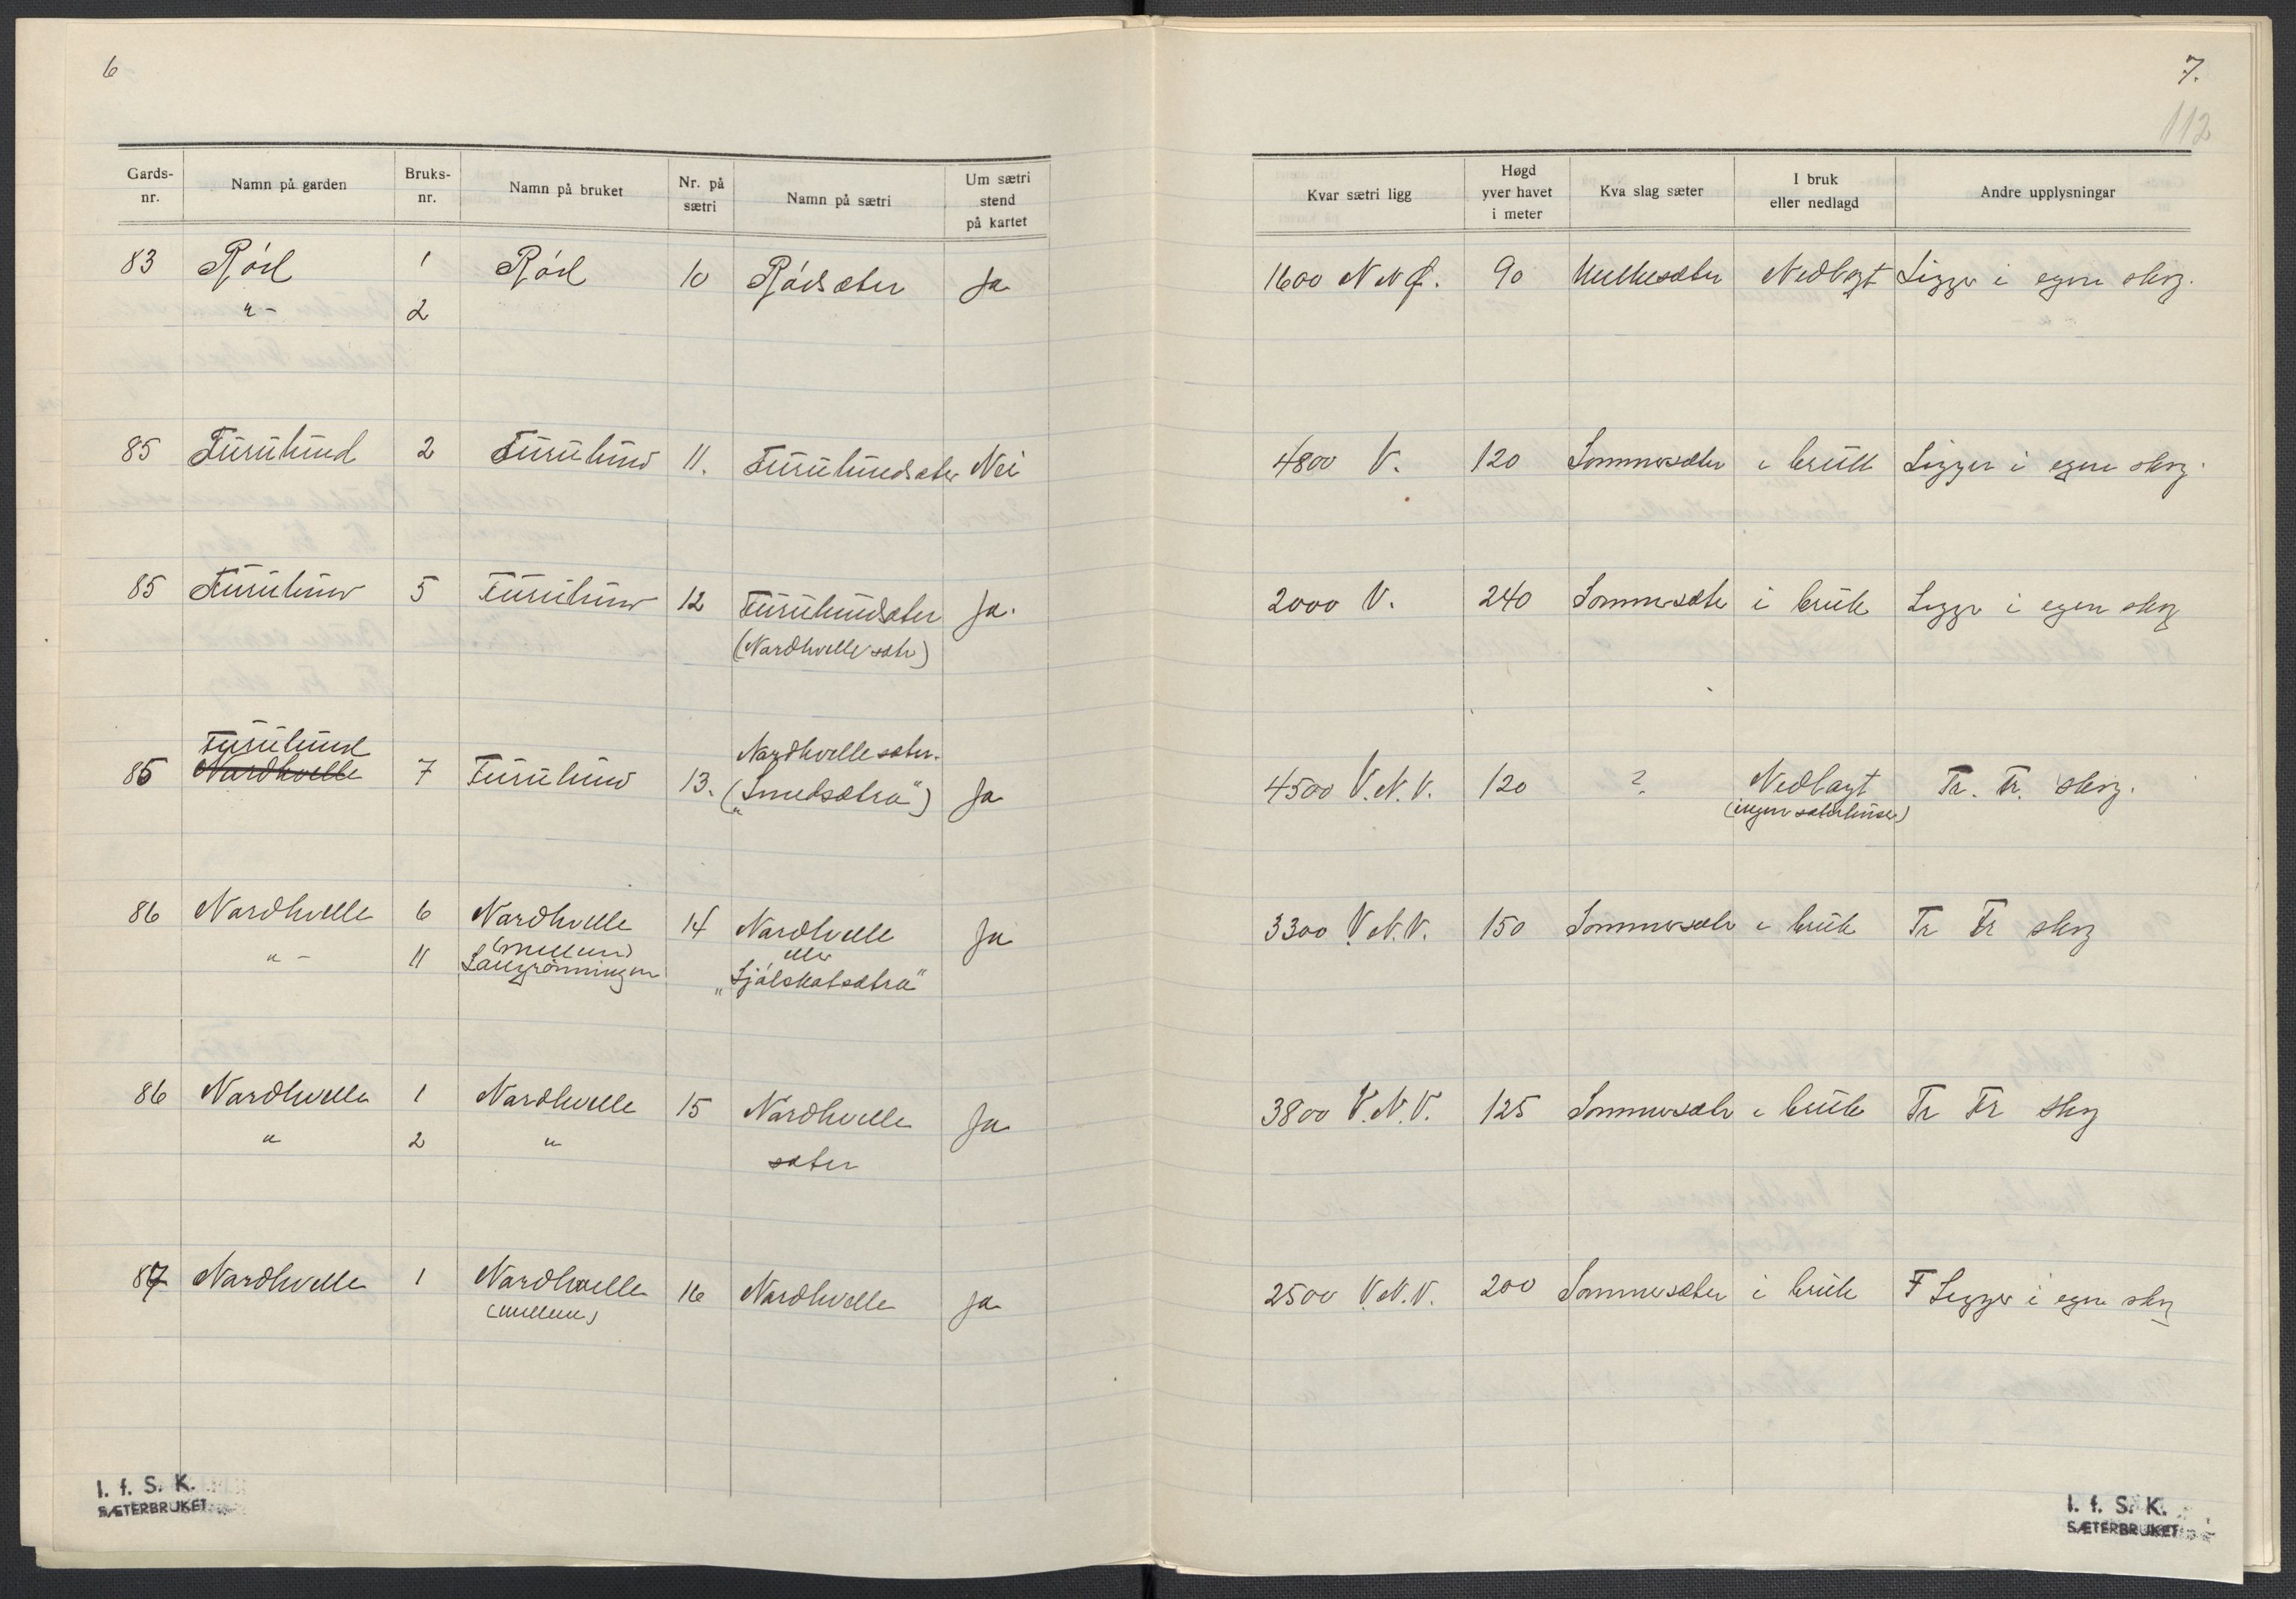 6
Gards-nr. Namn på garden Bruks-nr. Namn på bruket Nr. på sætri Namn på sætri Um sætri stend på kartet
83 Rød 1 Rød 10 Rødsæter Ja
" - 2
85 Furulund 2 Furulund 11. Furulundsæter Nei
85 Furulund 5 Furulund 12 Furulundsæter Ja.
(Nardhvellesæter)
Furulund Nardhvellesæter.
85 Nardhvelle 7 Furulund 13. („Smedsætra") Ja
86 Nardhvelle 6 Nardhvelle 14 Nardhvelle Ja
(mellem) eller
" - 11 Langrønningen „Sjålskatsætra"
86 Nardhvelle 1 Nardhvelle 15 Nardhvelle Ja
" 2 " sæter
87 Nardhvelle 1 Nardhvelle 16 Nardhvelle Ja
(mellem)
I. f. S. K.
SÆTERBRUKET
7.
112
Kvar sætri ligg Høgd yver havet i meter Kva slag sæter I bruk eller nedlagd Andre upplysningar
1600 N N Ø. 90 Melkesæter Nedlagt Ligger i egen skog.
4800 V. 120 Sommersæter i bruk Ligger i egen skog.
2000 V. 240 Sommersæter i bruk Ligger i egen skog
4500 V.N.V. 120 ? Nedlagt Tr. Fr. skog.
(ingen sæterhuser)
3300 V.N.V. 150 Sommersæter i bruk Tr Fr skog
3800 V.N.V. 125 Sommersæter i bruk Tr Fr skog
2500 V.N.V. 200 Sommersæter i bruk F Ligger i egen skog
I. f. S. K.
SÆTERBRUKET